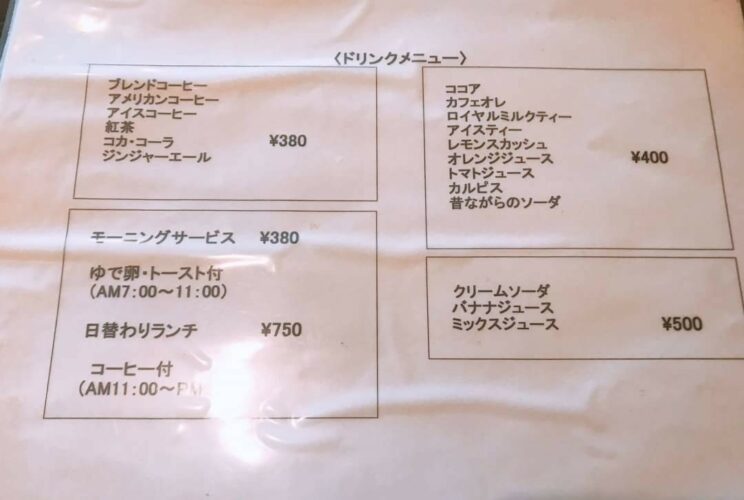 〈ドリンクメニュー〉
ブレンドコーヒー
アメリカンコーヒー
アイスコーヒー
紅茶
コカ・コーラ ¥380
ジンジャーエール
モーニングサービス ¥380
ゆで卵・トースト付
（AM7：00～11：00）
日替わりランチ ¥750
コーヒー付
（AM11：00～
ココア
カフェオレ
ロイヤルミルクティー
アイスティー
レモンスカッシュ
オレンジジュース ¥400
トマトジュース
カルピス
昔ながらのソーダ
クリームソーダ
バナナジュース
ミックスジュース ¥500